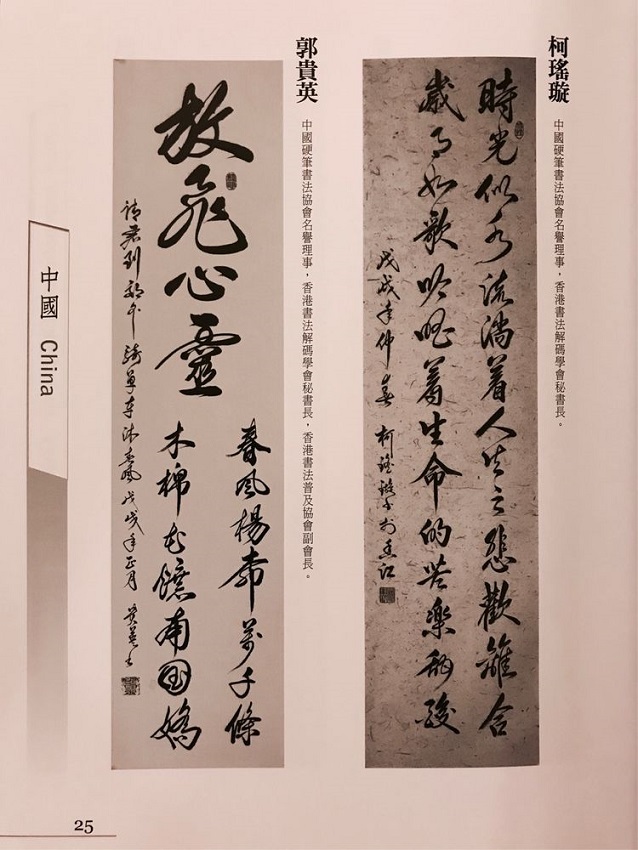 柯瑤璇
中國硬筆書法協會名譽理事，香港書法解碼學會秘書長。
時光似水流淌着人生之悲歡離合
歲月如歌吟唱著生命的苦樂甜酸
戊戌年仲春 柯瑤璇書於香江
郭貴英
中國硬筆書法協會名譽理事，香港書法解碼學會秘書長，香港書法普及協會副會長。
放飛心靈
春風楊萬千條
木棉花南國嬌
請君到郊外騎單車沐春風戊戌年正月 貴英書
中國 China
25